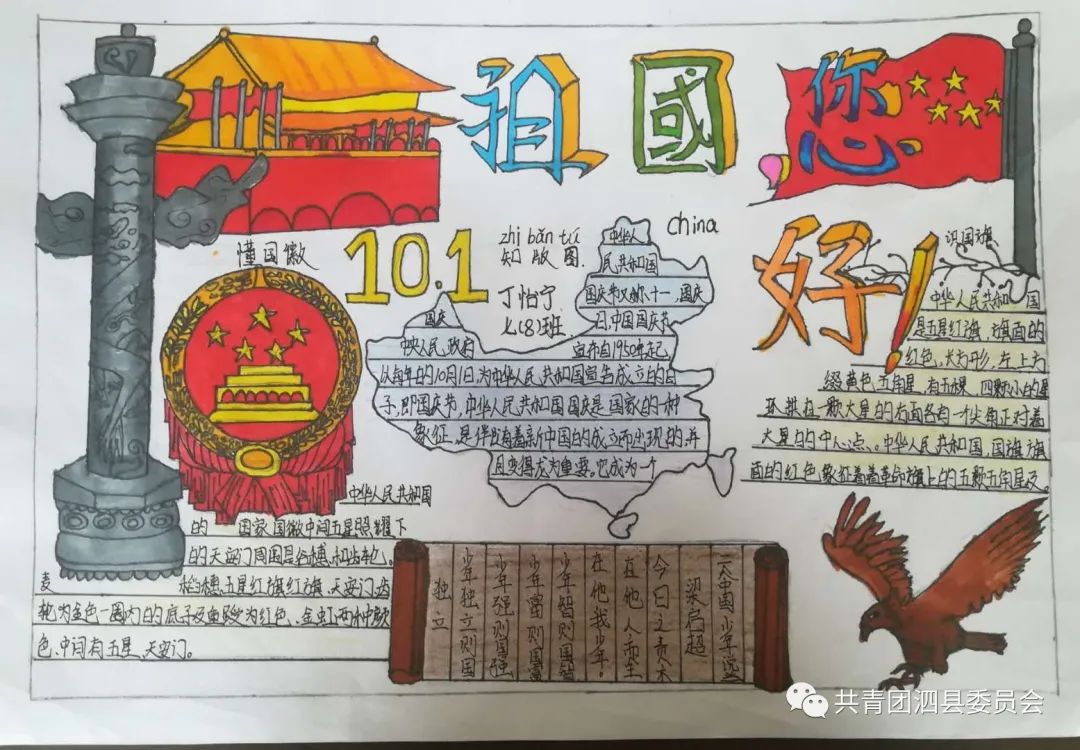 祖國您
好!
10.1
china
zhī bǎn tú
知版图.
丁怡宁
七(8)班
懂国徽
中华人民共和国
的 国家国徽中间五星照耀下
的天安门周围是谷穗和齿轮、
麦 稻穗,五星红旗红旗、天安门齿
轮为金色一圈内的底子及垂绶为红色、金红两种颜
色、中间有五星、天安门。
中华人
民共和国
国庆节又称十一 国庆
日,中国国庆节
国庆
中央人民政府 宣布自1950年起
以每年的10月1日,为中华人民共和国宣告成立的日
子,即国庆节,中华人民共和国国庆是国家的一种
象征,是伴随着新中国的成立而出现的,并
且变得尤为重要。它成为一个
识国旗
中华人民共和 国
是五星红旗 旗面的
红色,长方形,左上方
缀黄色五角星 有五颗 四颗小的星
环拱在一颗大星的右面各有一个尖角正对着
大星的中心点。中华人民共和国,国旗旗
面的红色象征着着革命旗上的五颗五角星及
《中国少年说》
梁启超
今日之责不
在他人而全
在他我少年。
少年智则国智
少年富则国富
少年强则国强
少年独立则国
独立
共青团泗县委员会